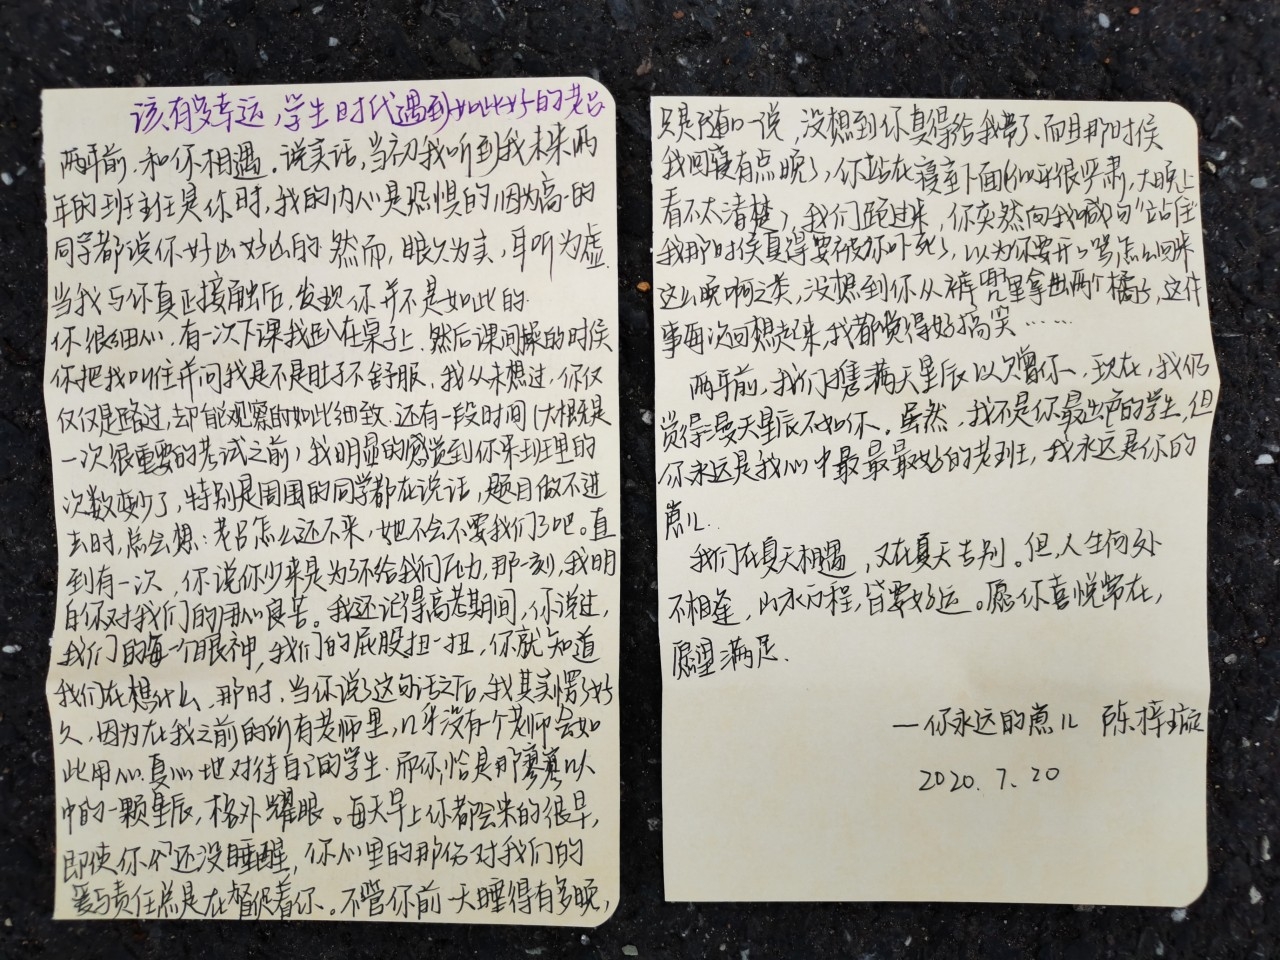 该有多幸运,学生时代遇到如此好的老吕
两年前,和你相遇。说实话,当初我听到我未来两
年的班主任是你时,我的内心是恐惧的,因为高一的
同学都说你好凶好凶的 然而,眼见为实,耳听为虚.
当我与你真正接触后,发现你并不是如此的.
你很细心,有一次下课我趴在桌子上,然后课间操的时候
你把我叫住并问我是不是肚子不舒服,我从未想过,你仅
仅仅是路过,却能观察的如此细致.还有一段时间(大概是
一次很重要的考试之前)我明显的感觉到你来班里的
次数变少了,特别是周围的同学都在说话,题目做不进
去时,总会想:老吕怎么还不来,她不会不要我们了吧。直
到有一次,你说你少来是为了不给我们压力,那一刻,我明
白你对我们的用心良苦。我还记得高考期间,你说过,
我们的每一个眼神,我们的屁股扭一扭,你就知道
我们在想什么,那时,当你说了这句话之后,我其实愣了好
久,因为在我之前的所有老师里,几乎没有一个老师会如
此用心.真心地对待自己的学生.而你,恰是那寥寥
中的一颗星辰,格外耀眼。每天早上你都会来的很早,
即使你个还没睡醒,你心里的那份对我们的
爱与责任总是在督促着你。不管你前一天睡得有多晚,
只是随口一说,没想到你真得给我带了,而且那时候
我回寝有点晚了,你站在寝室下面(似乎很严肃,大晚上
看不太清楚),我们路过来,你突然向我喊一句“站住”
我那时候真得要被你吓死了,以为你要开口骂怎么回来
这么晚啊之类,没想到你从裤兜里拿出两个橘子,这件
事每次回想起来,我都觉得好搞笑……
两年前,我们携满天星辰以赠你,现在,我仍
觉得漫天星辰不如你。虽然,我不是你最出色的学生,但
你永远是我心中最最最好的老班,我永远是你的
崽儿.
我们在夏天相遇,又在夏天告别。但,人生何处
不相逢,山水万程,皆要好运。愿你喜悦常在,
愿望满足.
—你永远的崽儿 陈梓璇
2020.7.20